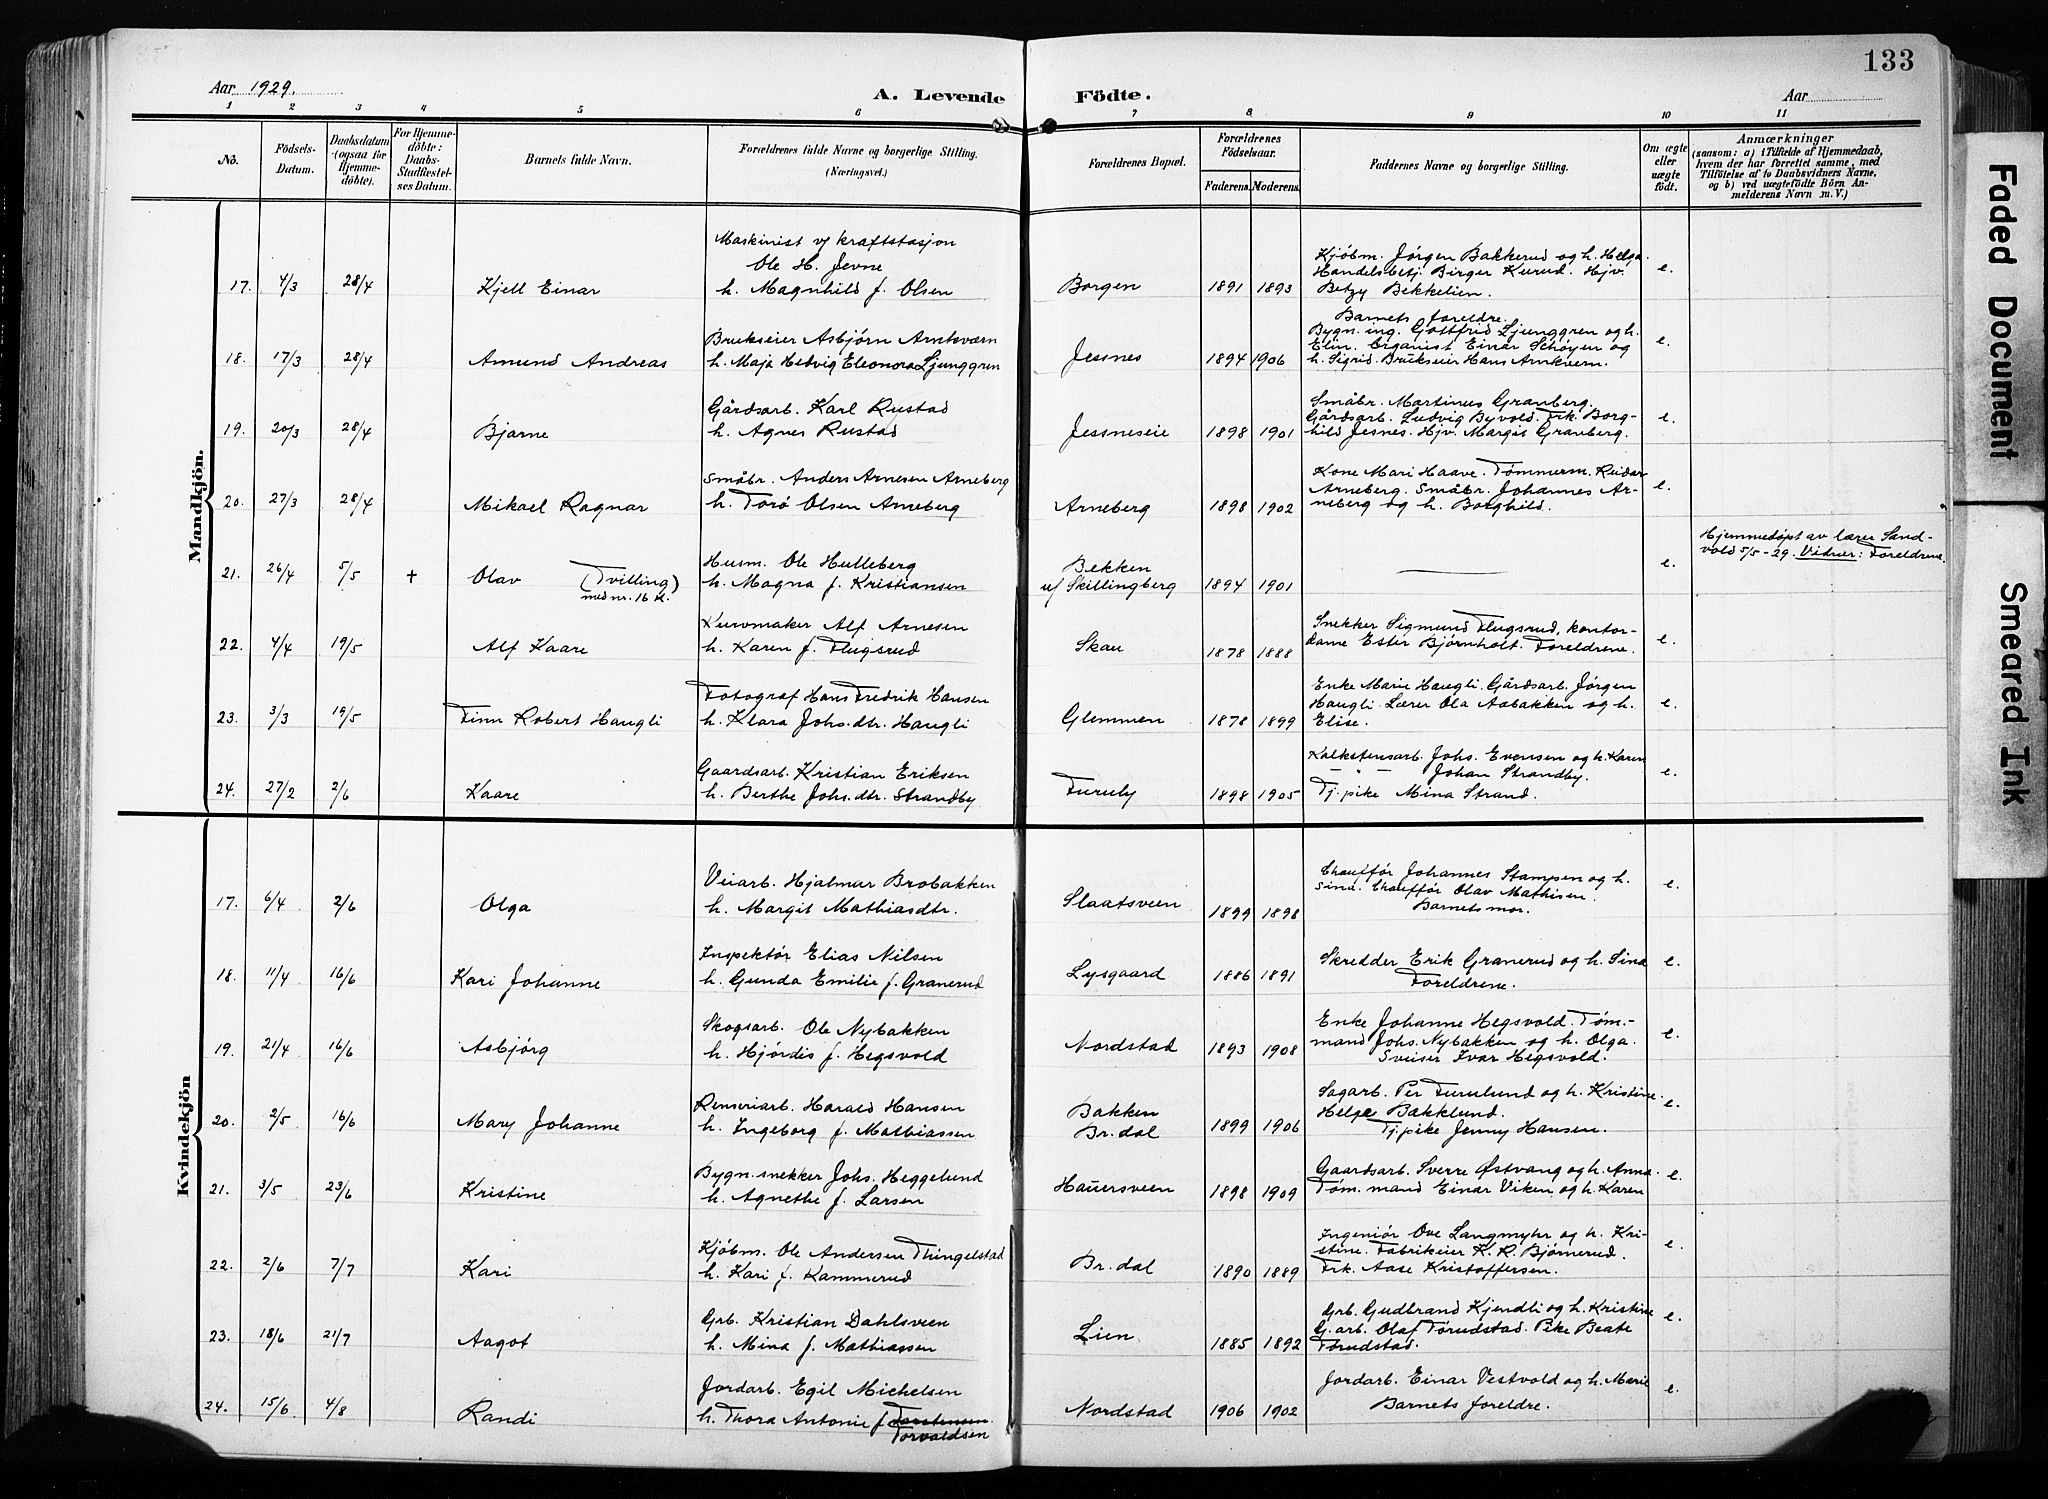 133
Aar 1929.
A. Levende Födte.
Aar
1 2 3 4 5 6 7 8 9 10 11
No.
Födsels-Datum.
Daabsdatum (ogsaa for Hjemmedöbte).
For Hjemmedöbte: Daabs-Stadfæstelses Datum.
Barnets fulde Navn.
Forældrenes fulde Navne og borgerlige Stilling. (Næringsvei.)
Forældrenes Bopæl.
Forældrenes Födselsaar.
Faderens. Moderens.
Faddernes Navne og borgerlige Stilling.
Om ægte eller uægte födt.
Anmærkninger
(saasom: a) i Tilfælde af Hjemmedaab,
hvem der har forrettet samme, med
Tilföielse af to Daabsvidners Navne,
og b) ved uægtefödte Börn An-
melderens Navn m. V.)
Mandkjön.
17. 4/3 28/4 Kjell Einar
Maskinist v/ kraftstasjon
Ole H. Jevne
h. Magnhild f. Olsen
Borgen 1891 1893
Kjøbm. Jørgen Bakkerud og h. Helga
Handelsbetj. Birger Kurud. Hjv.
Betzy Bekkelien.
e.
18. 17/3 28/4 Amund Andreas
Brukseier Asbjørn Arntsværn
h. Maja Hedvig Eleonora Ljunggren
Jessnes 1894 1906
Barnets foreldre.
Bygn. ing. Gottfrid Ljunggren og h.
Elin. Organist Einar Schøyen og
h. Sigrid. Brukseier Hans Arnkværn.
e.
19. 20/3 28/4 Bjarne
Gårdsarb. Karl Rustad
h. Agnes Rustad
Jessneseie 1898 1901
Småbr. Martinus Granberg.
Gårdsarb. Ludvig Byvold. Frk. Borg-
hild Jesnes. Hjv. Margit Granberg.
e.
20. 27/3 28/4 Mikael Ragnar
Småbr. Anders Arnesen Arneberg
h. Torø Olsen Arneberg
Arneberg 1898 1902
Kone Mari Haave. Tømmerm. Reidar
Arneberg. Småbr. Johannes Ar-
neberg og h. Borghild.
e.
21. 26/4 5/5 + Olav (Tvilling)
med nr. 16 K.
Husm. Ole Hulleberg
h. Magna f. Kristiansen
Bekken
u/ Skillingberg 1894 1901
e.
Hjemmedøpt av lærer Sand-
vold 5/5-29. Vidner: Foreldrene.
22. 4/4 19/5 Alf Kaare
Kurvmaker Alf Arnesen
h. Karen f. Flugsrud
Skau 1878 1888
Snekker Sigmund Flugsrud, kontor-
dame Ester Bjørnholt. Foreldrene.
e.
23. 3/3 19/5 Finn Robert Haugli
Fotograf Hans Fredrik Hansen
h. Klara Johs.dtr. Haugli
Glemmen 1878 1899
Enke Marie Haugli. Gårdsarb. Jørgen
Haugli. Lærer Ola Aabakken og h.
Elise.
e.
24. 27/2 2/6 Kaare
Gaardsarb. Kristian Eriksen
h. Berthe Johs.dtr. Strandby
Furuly 1898 1905
Kalkstensarb. Johs. Evensen og h. Karen
—"— Johan Strandby.
Tj. pike Mina Strand.
e.
Kvindekjön
17. 6/4 2/6 Olga
Veiarb. Hjalmar Brobakken
h. Margit Mathiasdtr.
Slaatsveen 1899 1898
Chauffør Johannes Stampen og h.
Sina. Chauffør Olav Mathisen.
Barnets mor.
e.
18. 11/4 16/6 Kari Johanne
Inspektør Elias Nilsen
h. Gunda Emilie f. Granerud
Lysgaard 1886 1891
Skredder Erik Granerud og h. Sina
Foreldrene.
e.
19. 21/4 16/6 Asbjørg
Skogsarb. Ole Nybakken
h. Hjørdis f. Hegsvold
Nordstad 1893 1908
Enke Johanne Hegsvold. Tøm.-
mand Johs. Nybakken og h. Olga.
Sveiser Ivar Hegsvold.
e.
20. 2/5 16/6 Mary Johanne
Renseriarb. Harald Hansen
h. Ingeborg f. Mathiassen
Bakken
Br.dal 1899 1906
Sagarb. Per Furulund og h. Kristine.
Helge Bæklund.
Tj.pike Jenny Hansen.
e.
21. 3/5 23/6 Kristine
Bygn. snekker Johs. Heggelund
h. Agnethe f. Larsen
Hauersveen 1898 1909
Gaardsarb. Sverre Østvang og h. Anna.
Tøm. mand Einar Viken og h. Karen
e.
22. 2/6 7/7 Kari
Kjøbm. Ole Andersen Thingelstad
h. Kari f. Kammerud
Br. dal 1890 1889
Ingeniør Ove Langmyhr og h. Kri-
stine. Fabrikeier K. R. Bjørnerud.
Frk. Aase Kristoffersen.
e.
23. 18/6 21/7 Aagot
Grb. Kristian Dahlsveen
h. Mina f. Mathiassen
Lien 1885 1892
Grb. Gudbrand Kjendli og h. Kristine
G. arb. Olaf Tørudstad. Pike Beate
Tørudstad.
e.
24. 15/6 4/8 Randi
Jordarb. Egil Michelsen
h. Thora Antonie f. Torstensen
Torvaldsen
Nordstad 1906 1902
Jordarb. Einar Vestvold og h. Marie
Barnets foreldre.
e.
Faded Document
Smeared Ink